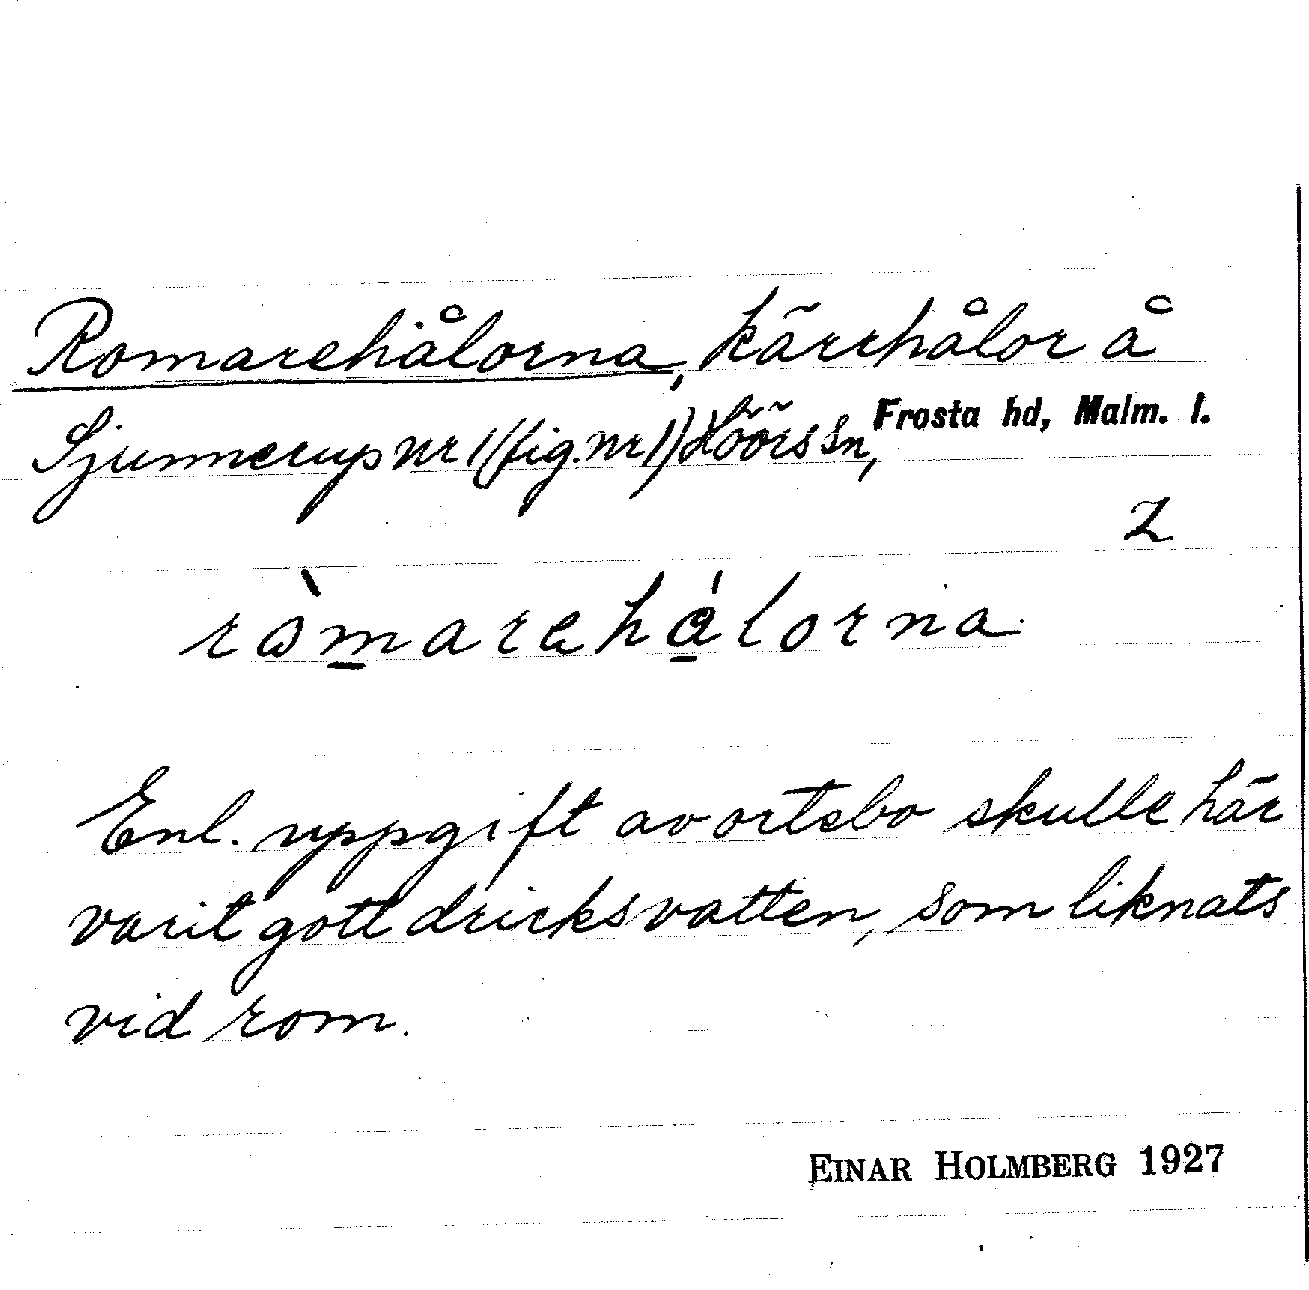 Romarehålorna, kärrhålor å
Sjunnerup nr 1 (fig. nr 1) Höörs sn, Frosta hd, Malm. l.
Z
ròmarehålorna
Enl. uppgift av ortsbo skulle här
varit gott dricksvatten, som liknats
vid rom.
EINAR HOLMBERG 1927